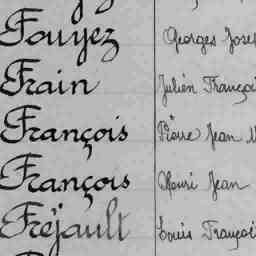 Fouyez Georges Josep
Frain Julien Françoi
François Pierre Jean M
François Henri Jean
Fréjault Louis Françoi